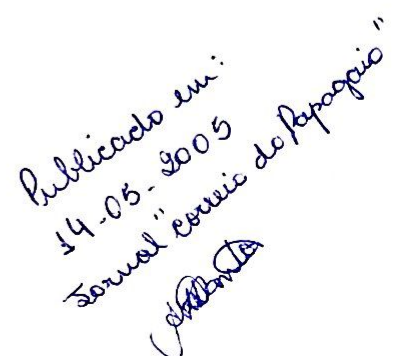 Publicado em:
14-05-2005
Jornal "Correio do Papagaio"